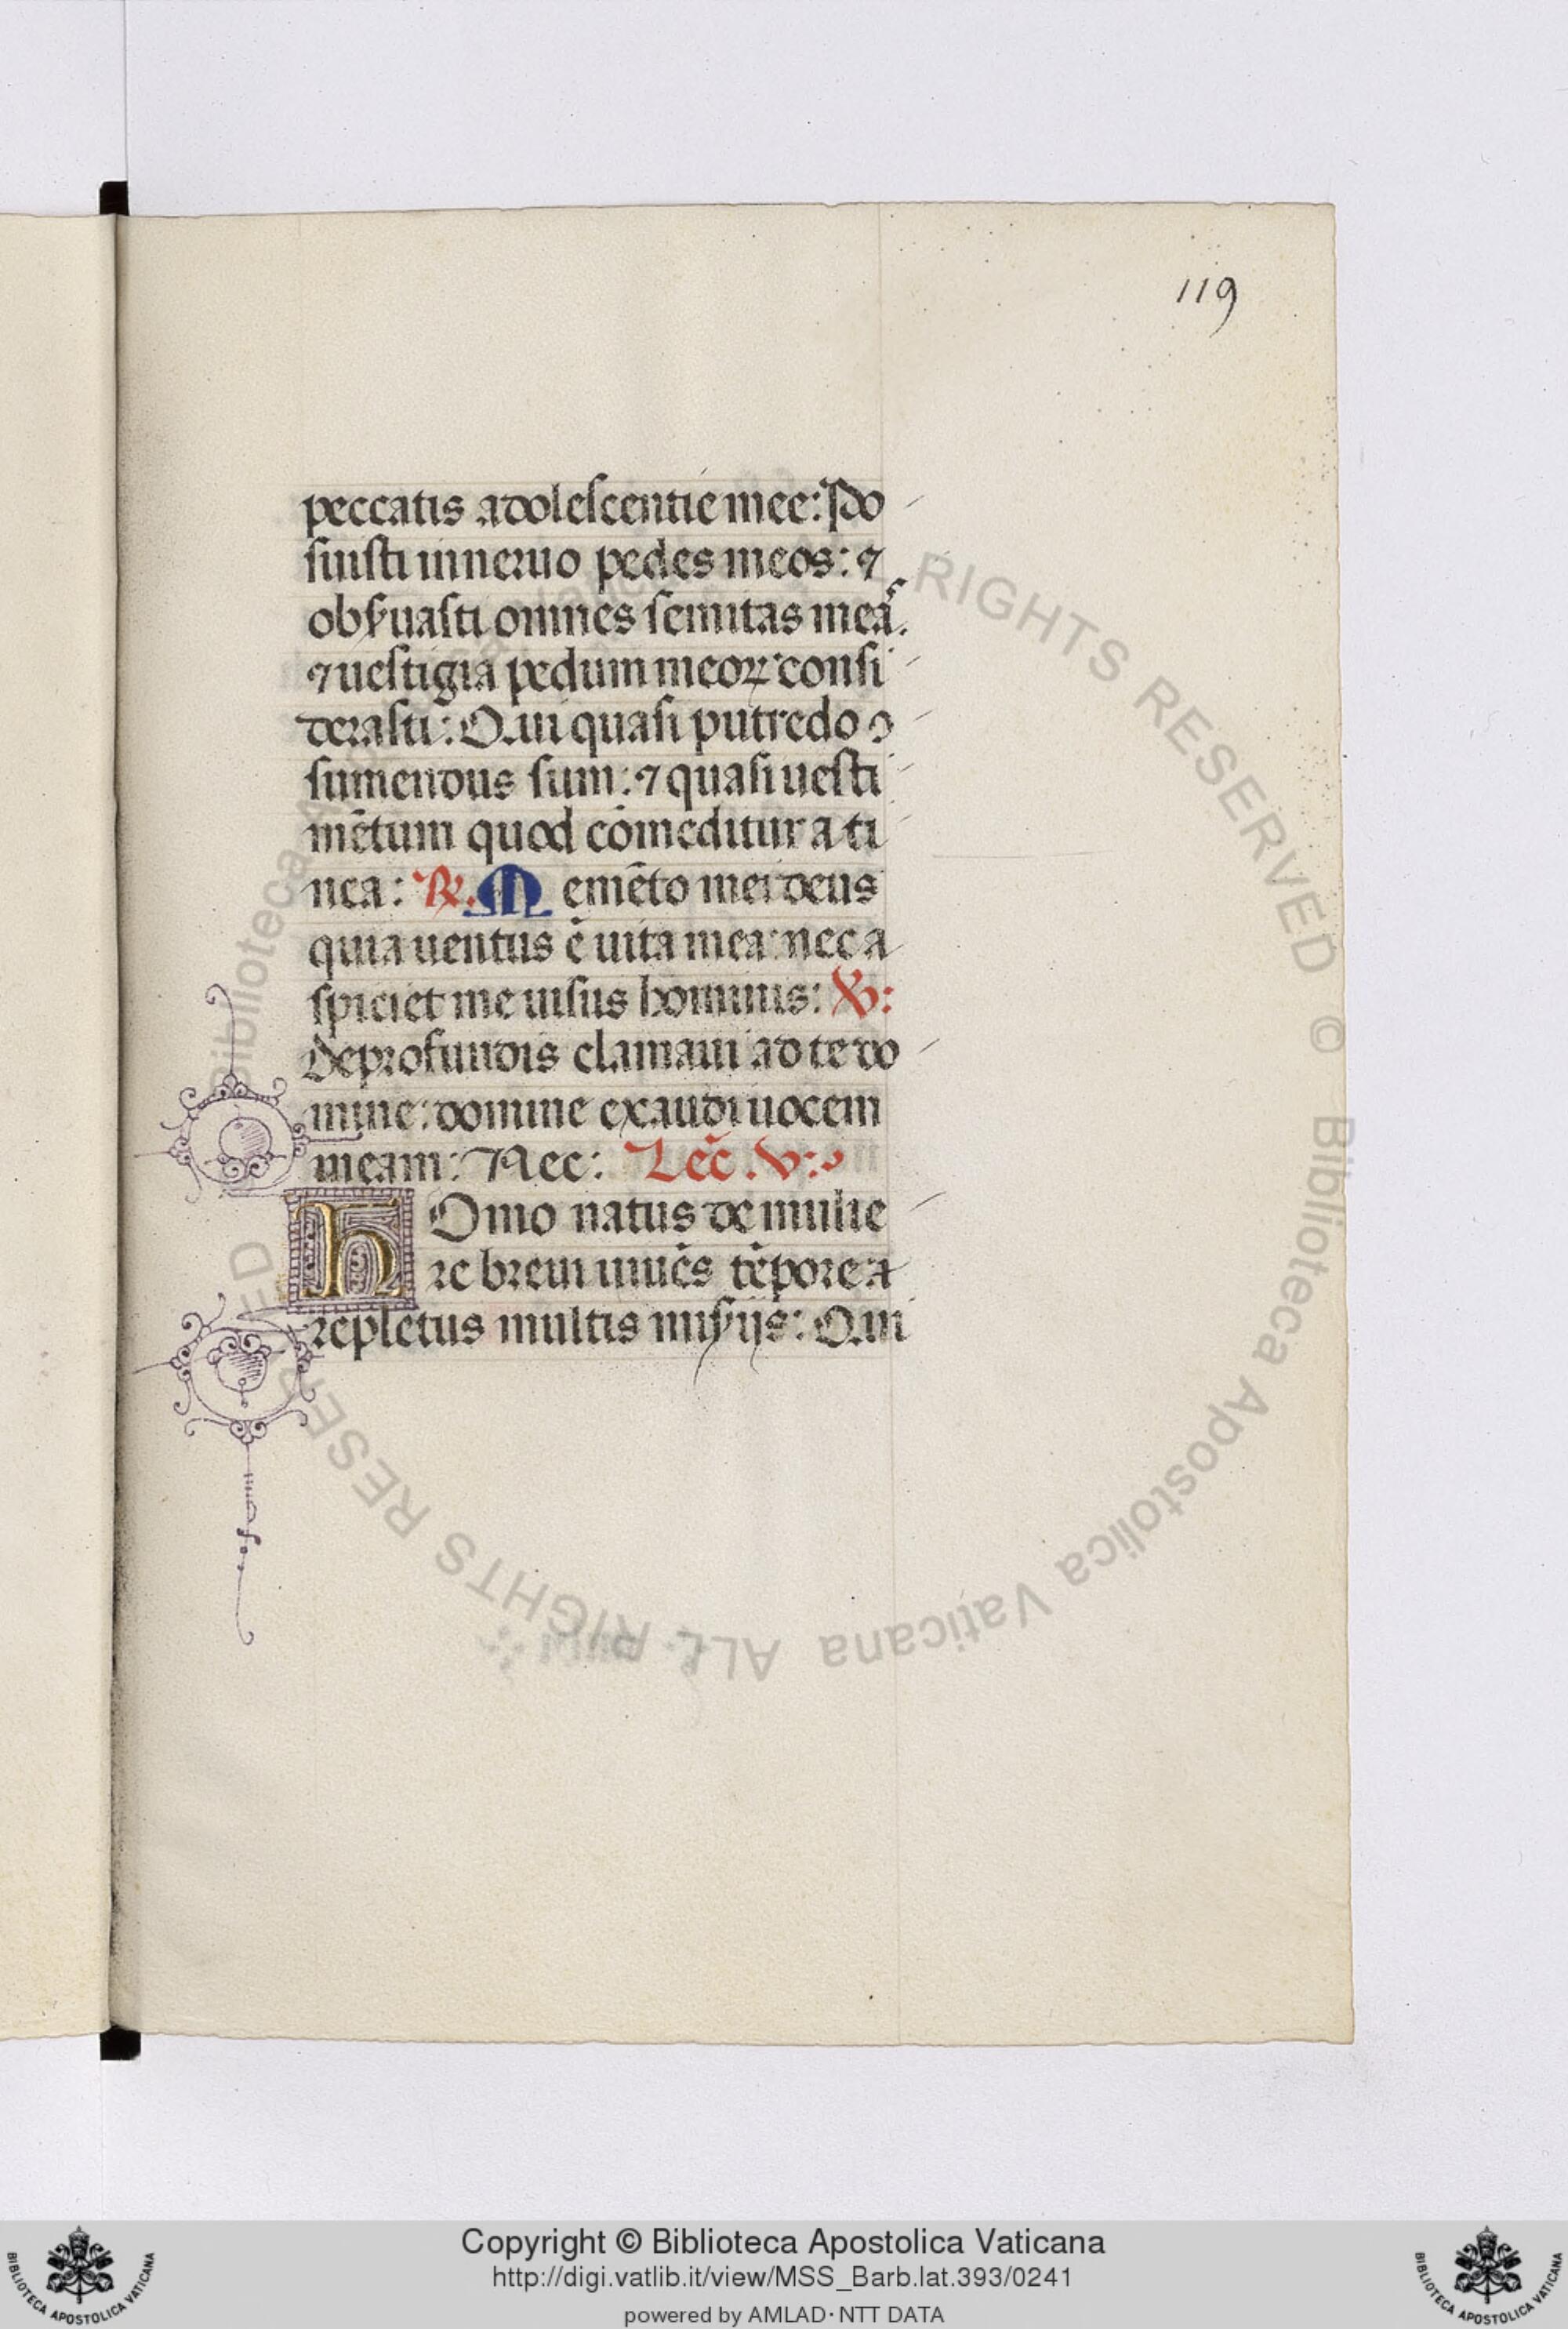 119
peccatis adolescentie mee: Po
suisti in neruo pedes meos: ⁊
obẜuasti omnes semitas meaˢ.
⁊ uestigia pedum meoꝝ consi
derasti: Qui quasi putredo ꝯ
sumendus sum: ⁊ quasi uesti
mētum quod comeditur a ti
nea: ℟. Memēto mei deus
quia uentus ē uita mea: nec a
spiciet me uisus hominis: ℣:
De profundis clamaui ad te do
mine: domine exaudi uocem
meam: Nec: Lec̄. V:
HOmo natus de mulie
re breui uiuēs tēpore:
repletus multis miẜijs: Qui
Biblioteca Apostolica Vaticana ALL RIGHTS RESERVED © Biblioteca Apostolica Vaticana ALL RIGHTS RESERVED
Copyright © Biblioteca Apostolica Vaticana
http://digi.vatlib.it/view/MSS_Barb.lat.393/0241
powered by AMLAD·NTT DATA
BIBLIOTECA APOSTOLICA VATICANA
BIBLIOTECA APOSTOLICA VATICANA